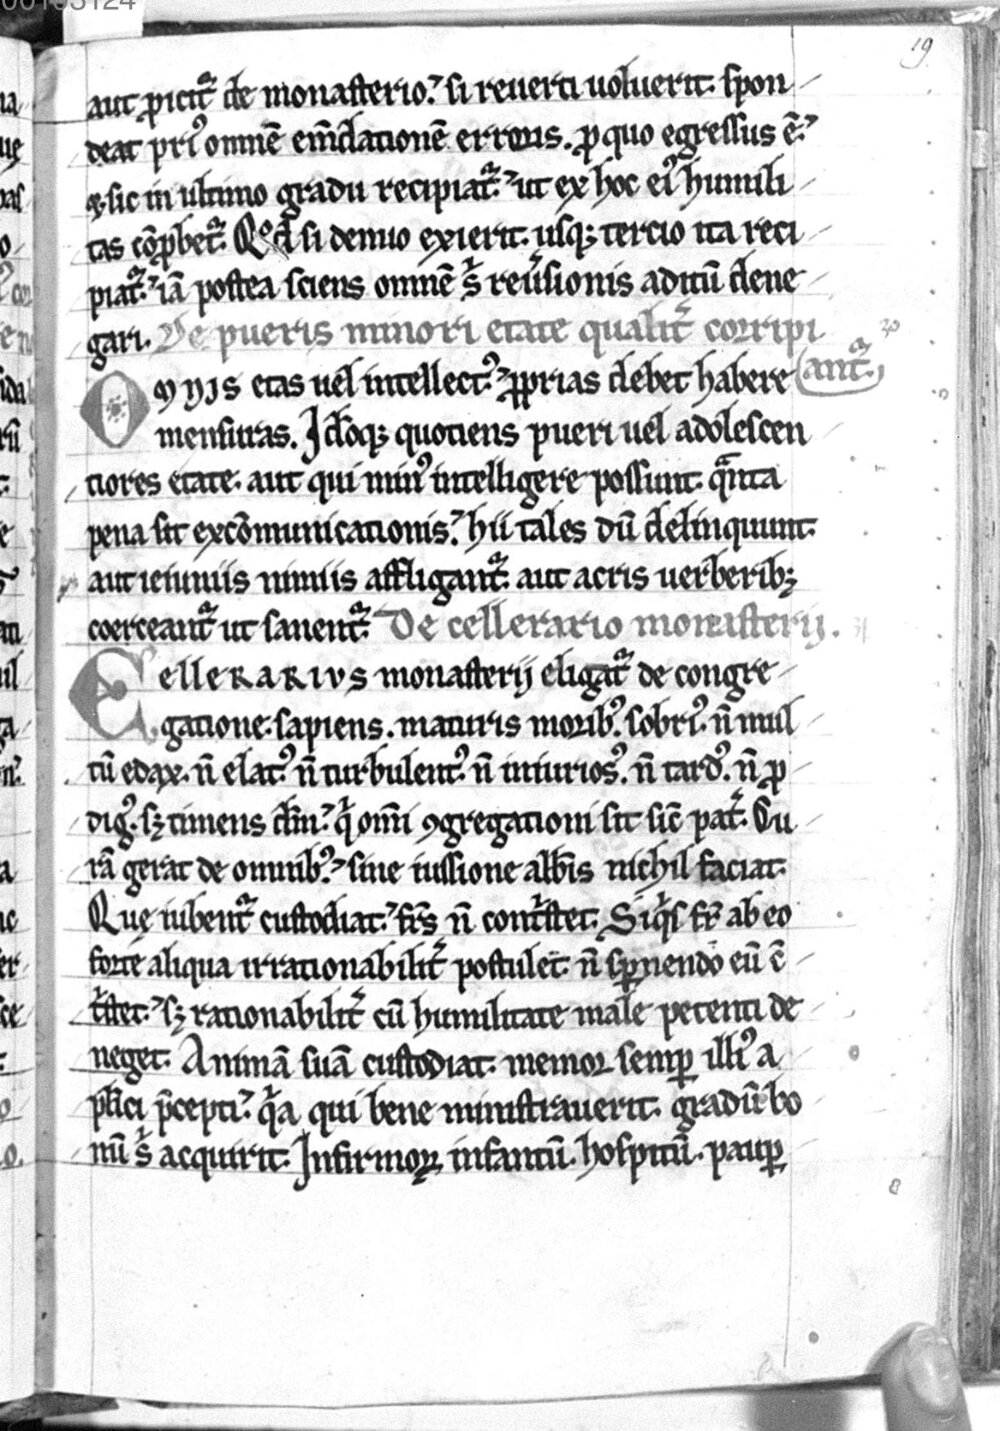 19
aut ꝓicit᷑ de monasterio. si reuerti uoluerit. spon
deat priꝰ omnē emdationē erroris. ꝓ quo egressus ē.
⁊ sic in ultimo gradu recipiat᷑. ut ex hoc eiꝰ humili
tas cōꝓbet᷑. Qd si denuo exierit. usqꝫ tercio ita reci
piat᷑. iā postea sciens omnē s̉ reuͥsionis aditū dene
gari. De pueris minori etate qualit᷑ corripi
ant᷑.
OMNIS etas uel intellectꝰ. ꝓprias debet habere
mensuras. Idoqꝫ quotiens pueri uel adolescen
tiores etate. aut qui minꝰ intelligere possunt. qͣnta
pena sit excōmunicationis. hii tales dū delinquunt.
aut ieiuniis nimiis affligant᷑. aut acris uerberibꝫ
coerceant᷑ ut sanent᷑. De cellerario monasterij.
CelleRARIVS monasterij eligat᷑ de congre
gatione. sapiens. maturis moribꝰ. sobriꝰ. n̄ mul
tū edax. n̄ elatꝰ. n̄ turbulentꝰ. n̄ iniuriosꝰ. n̄ tardꝰ. n̄ ꝓ
digꝰ. sꝫ timens dm̄. qͥ omī ꝯgregationi sit sic̄ pat᷑. Cu
rā gerat de omnibꝰ. sine iussione abb̄is nichil faciat.
Que iubent᷑ custodiat. fr̄s n̄ contͥstet. Siqͥs fr̄ ab eo
forte aliqua irrationabilit᷑ postulet. n̄ sꝑnendo eū ꝯ̄
tͥstet. sꝫ rationabilit᷑ cū humilitate male petenti de
neget. Animā suā custodiat. memor semꝑ illiꝰ a
pl̄ici p̄cepti. qͥa qui bene ministrauerit. gradū bo
nū s̉ acquirit. Infirmoꝝ. infantū. hospitū. pauꝑ